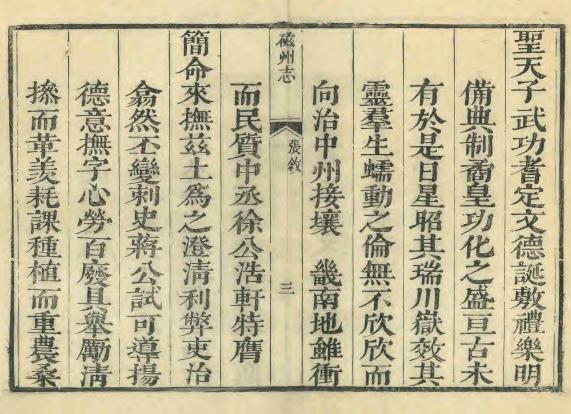 聖天子武功耆定文德誕敷禮樂明
備典制矞皇功化之盛亘古未
有於是日星昭其瑞川嶽效其
靈羣生蠕動之倫無不欣欣而
向治中州接壤 畿南地雖衝
磁州志
張敘
三
而民質中丞徐公浩軒特膺
簡命來撫茲土爲之澄清利弊吏治
翕然丕變刺史蔣公試可導揚
德意撫字心勞百廢具舉勵清
摻而革羨耗課種植而重農桑